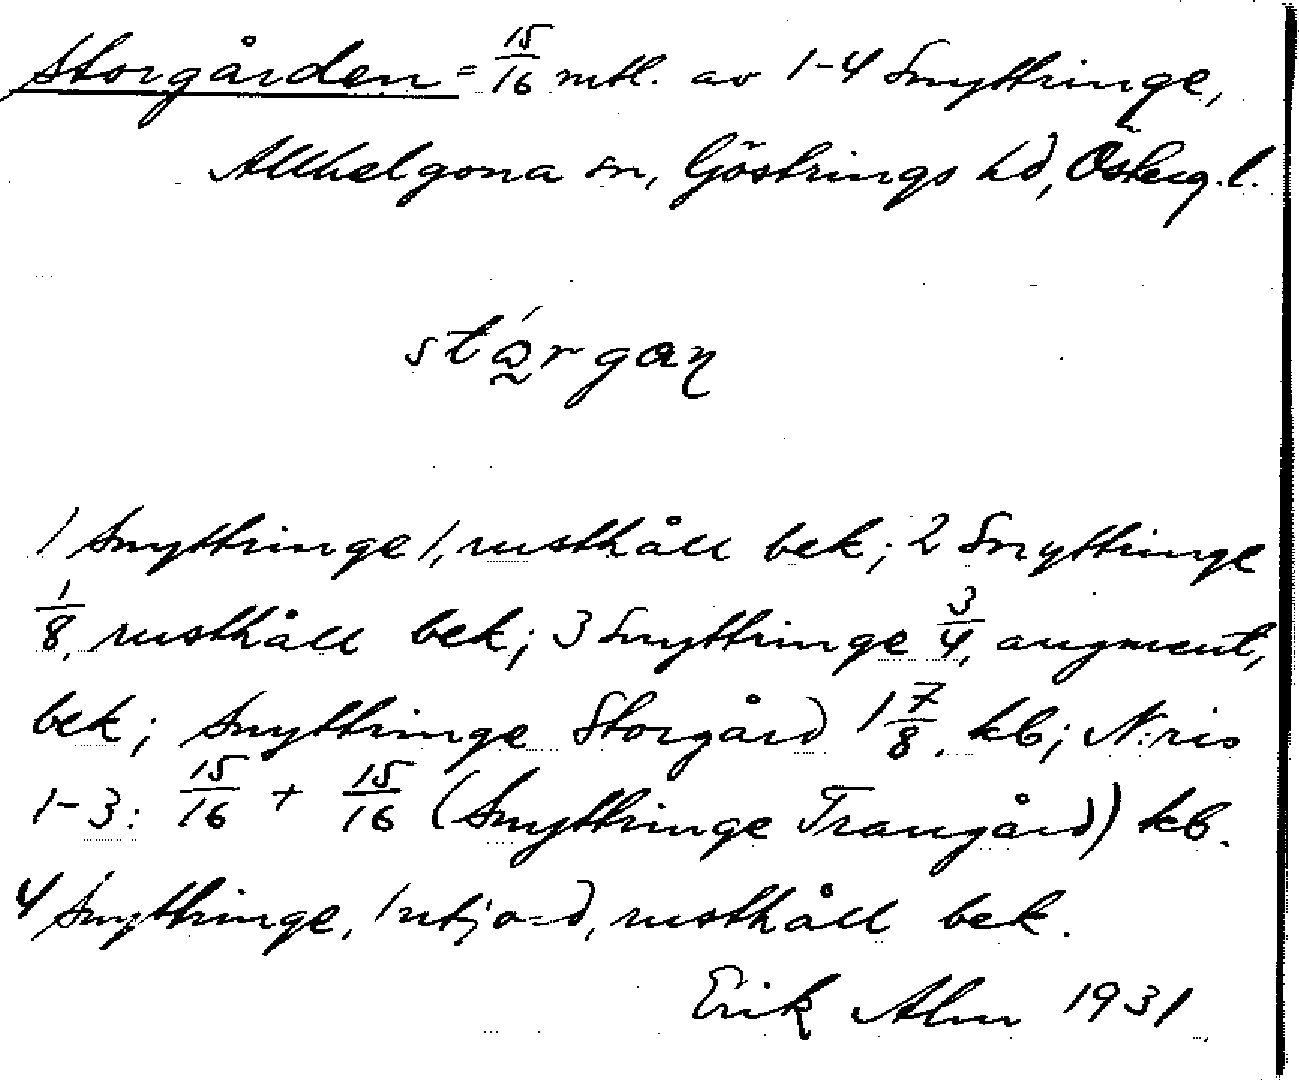 Storgården = 15/16 mtl. av 1-4 Smyttringe,
Allhelgona sn, Göstrings hd, Österg.l.
1 Smyttringe 1, rusthåll bek; 2 Smyttringe
1/8, rusthåll bek; 3 Smyttringe 3/4, augment,
bek; Smyttringe Storgård 1 7/8, kb; N:ris
1-3: 15/16 + 15/16 (Smyttringe Trangård) kb.
4 Smyttringe, 1 utjord, rusthåll bek.
Erik Alm 1931